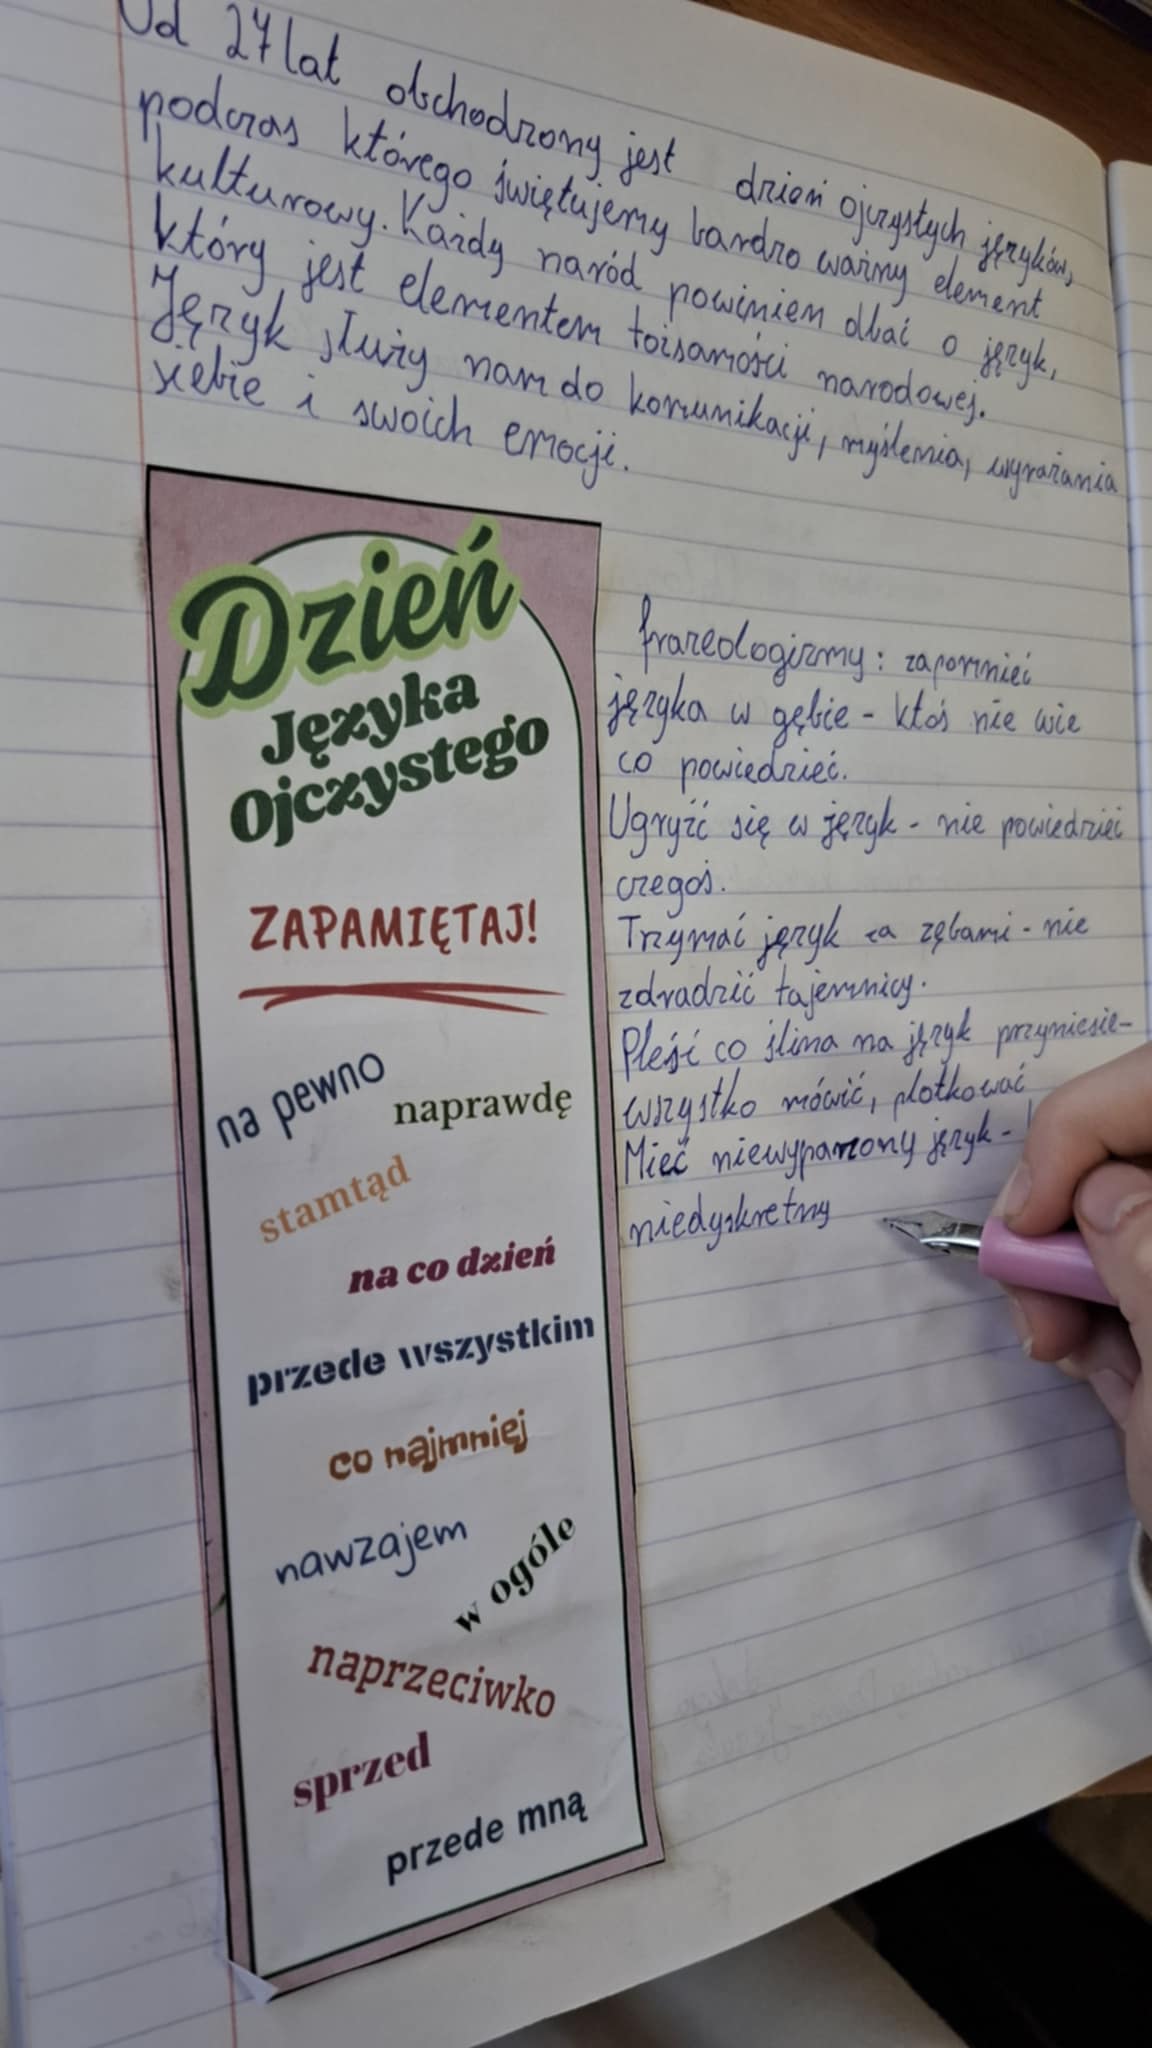 Od 27 lat obchodzony jest dzień ojczystych języków,
podczas którego świętujemy bardzo ważny element
kulturowy. Każdy naród powinien dbać o język,
który jest elementem tożsamości narodowej.
Język służy nam do komunikacji, myślenia, wyrażania
siebie i swoich emocji.
Dzień
Języka
Ojczystego
ZAPAMIĘTAJ!
na pewno
naprawdę
stamtąd
na co dzień
przede wszystkim
co najmniej
nawzajem
w ogóle
naprzeciwko
sprzed
przede mną
frazeologizmy: zapomnieć
języka w gębie - ktoś nie wie
co powiedzieć.
Ugryźć się w język - nie powiedzieć
czegoś.
Trzymać język za zębami - nie
zdradzić tajemnicy.
Pleść co ślina na język przyniesie-
wszystko mówić, plotkować
Mieć niewyparzony język -
niedyskretny